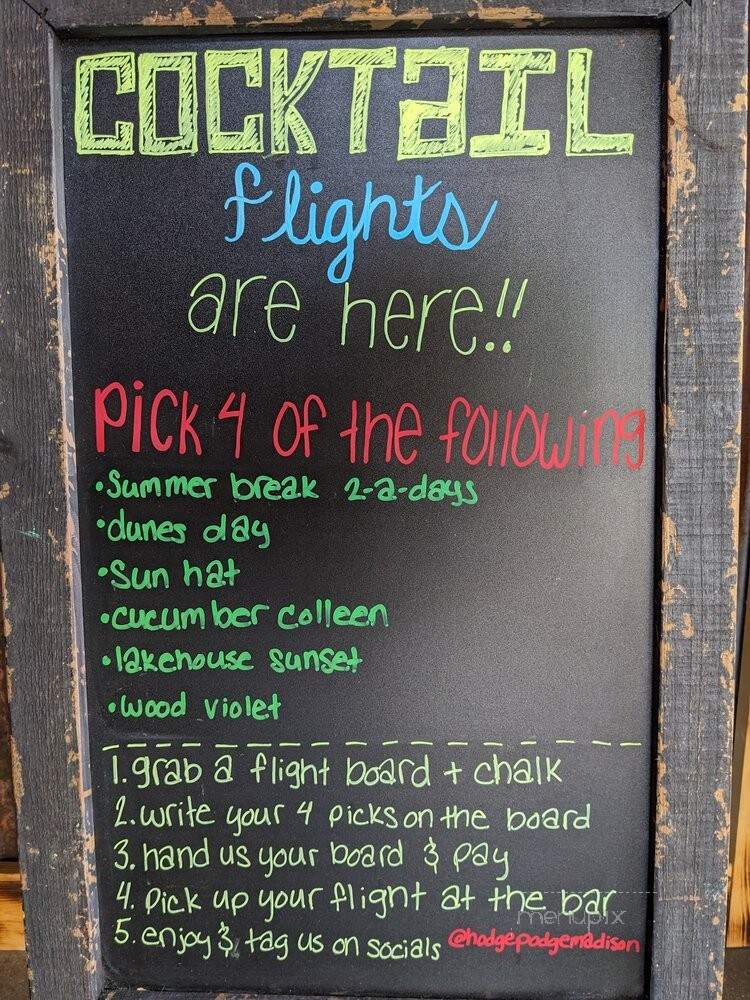 COCKTaIL
flights
are here!!
Pick 4 of the following
•Summer break 2-a-days
•dunes day
•Sun hat
•cucumber colleen
•lakehouse sunset
•wood violet
1. grab a flight board + chalk
2. write your 4 picks on the board
3. hand us your board & pay
4. Pick up your flight at the bar
menupix
5. enjoy &, tag us on socials @hodgepodgemadison